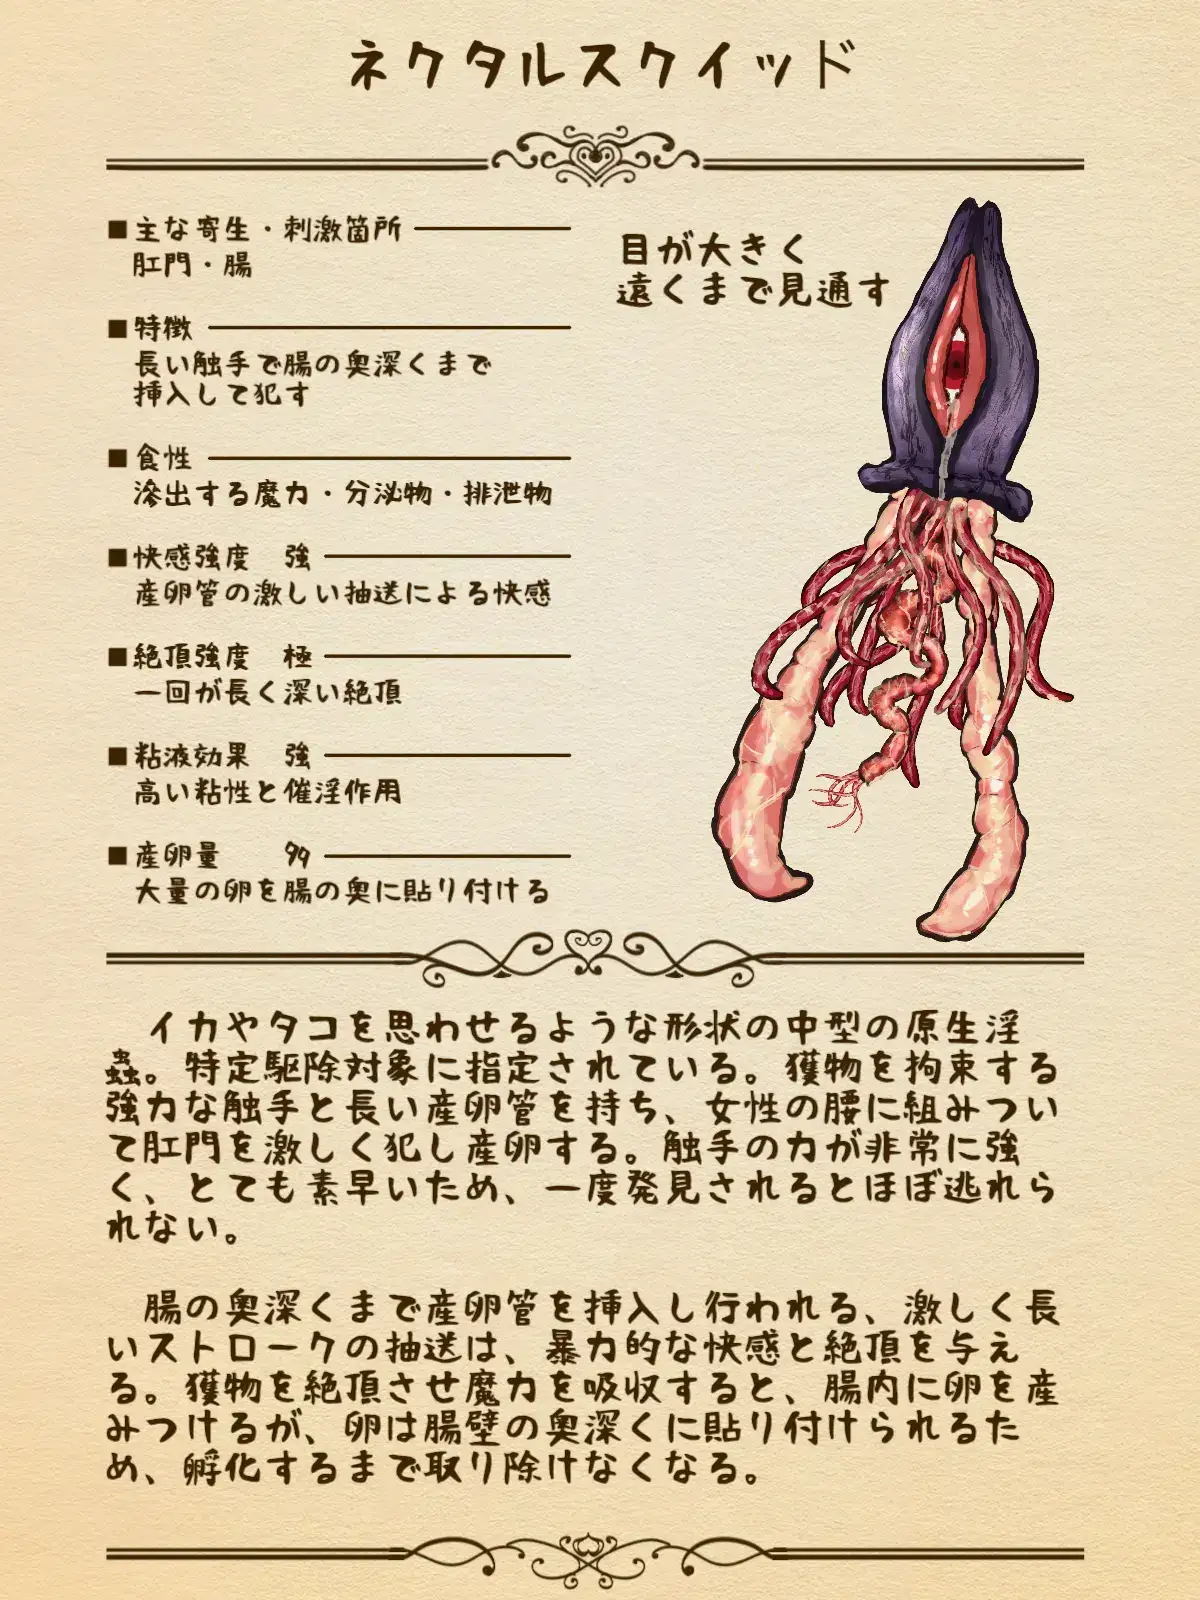 ネクタルスクイッド
■主な寄生・刺激箇所
肛門・腸
目が大きく
遠くまで見通す
■特徴
長い触手で腸の奥深くまで
挿入して犯す
■食性
滲出する魔力・分泌物・排泄物
■快感強度　強
産卵管の激しい抽送による快感
■絶頂強度　極
一回が長く深い絶頂
■粘液効果　強
高い粘性と催淫作用
■産卵量　　多
大量の卵を腸の奥に貼り付ける
イカやタコを思わせるような形状の中型の原生淫
蟲。特定駆除対象に指定されている。獲物を拘束する
強力な触手と長い産卵管を持ち、女性の腰に組みつい
て肛門を激しく犯し産卵する。触手の力が非常に強
く、とても素早いため、一度発見されるとほぼ逃れら
れない。
腸の奥深くまで産卵管を挿入し行われる、激しく長
いストロークの抽送は、暴力的な快感と絶頂を与え
る。獲物を絶頂させ魔力を吸収すると、腸内に卵を産
みつけるが、卵は腸壁の奥深くに貼り付けられるた
め、孵化するまで取り除けなくなる。